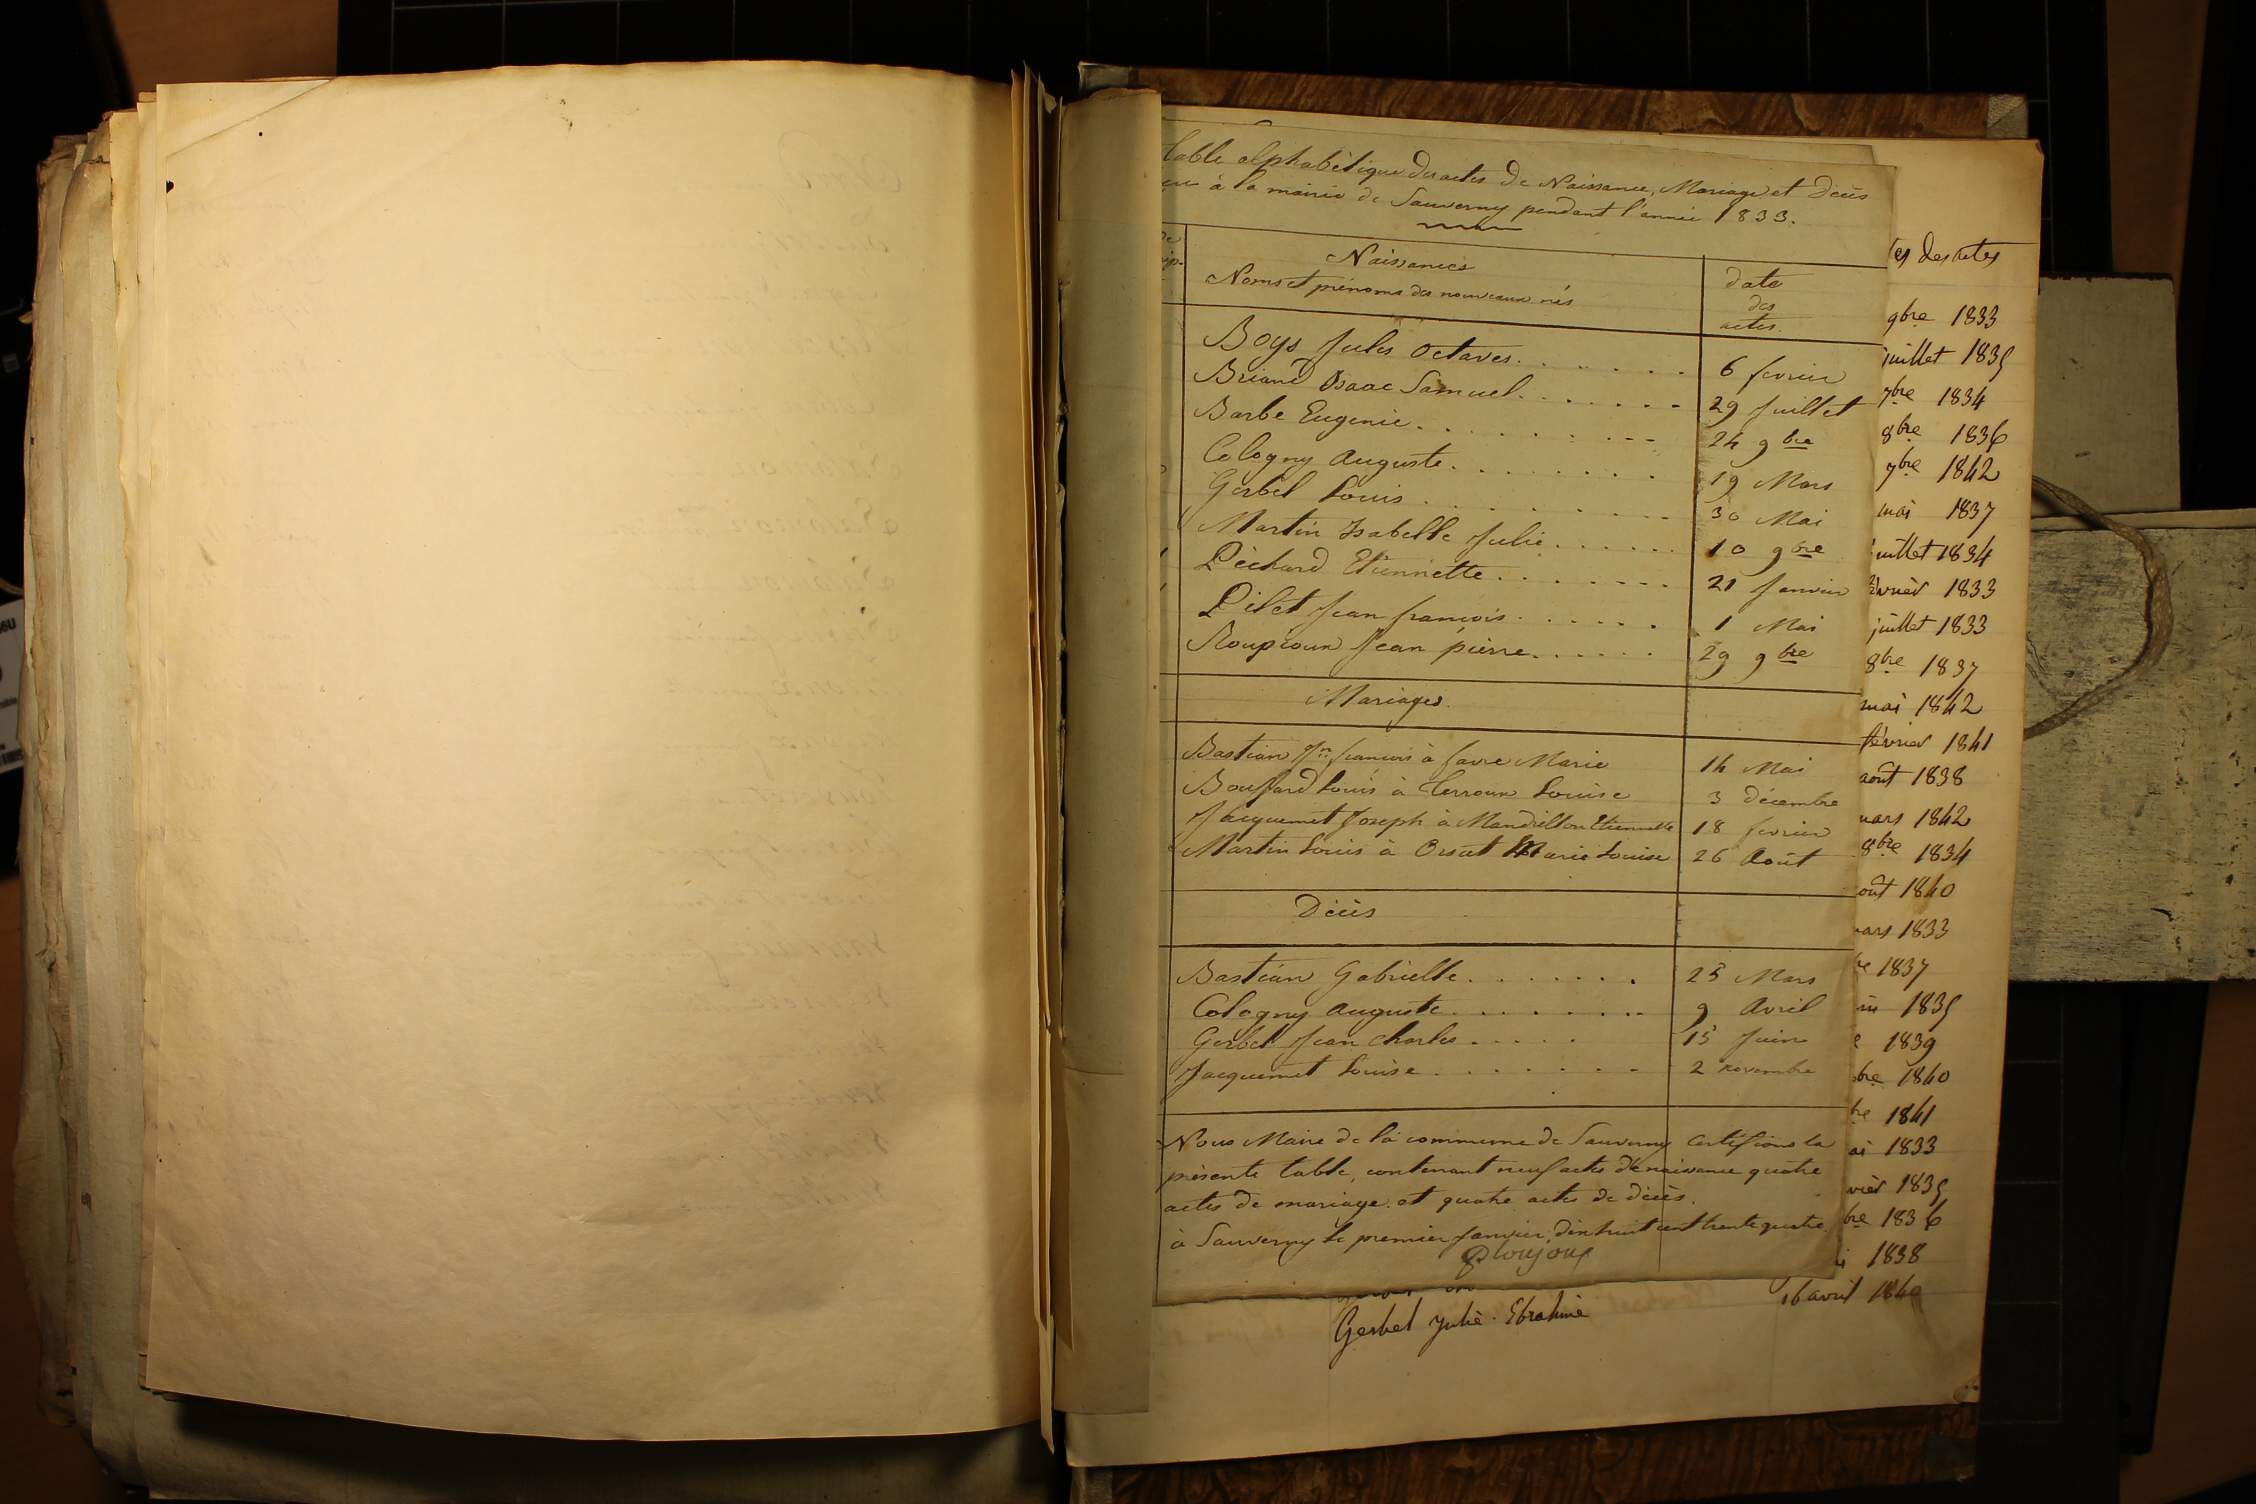 table alphabétique des actes de Naissance, Mariage et Décès
à la mairie de Sauverny pendant l'année 1833.
Naissances
Noms et prénoms des nouveaux nés
date
des
actes.
Boys Jules Octaves. 6 fevrier
Briand Isaac Samuel. 29 Juillet
Barbe Eugenie. 24 9bre
Cologny Auguste. 19 Mars
Gerbel Louis. 30 Mai
Martin Isabelle Julie. 10 9bre
Péchard Etiennette. 21 Janvier
Pilet Jean françois. 1 Mai
Roupioun Jean pierre. 29 9bre
Mariages.
Bastian Jn françois à favre Marie 14 Mai
Bouffard Louis à Terroux Louise 3 décembre
Jacquemet Joseph à Mandrillon Etiennette 18 fevrier
Martin Louis à Orsat Marie Louise 26 Août
Décès
Bastian Gabrielle. 25 Mars
Cologny Auguste. 9 Avril
Gerbel Jean Charles. 15 Juin
Jacquemet Louise. 2 novembre
Nous Maire de la commune de Sauverny Certifions la
présente table, contenant neuf actes de naissance quatre
actes de mariage. et quatre actes de décès.
à Sauverny le premier Janvier dix huit cent trente quatre.
Ploujoux
des actes
9bre 1833
juillet 1835
7bre 1834
8bre 1836
7bre 1842
mai 1837
juillet 1834
1833
juillet 1833
8bre 1837
mai 1842
février 1841
août 1838
mars 1842
8bre 1834
août 1840
mars 1833
1837
1835
1839
bre 1840
bre 1841
1833
1835
bre 1836
1838
Gerbel Julie 16 avril 1840